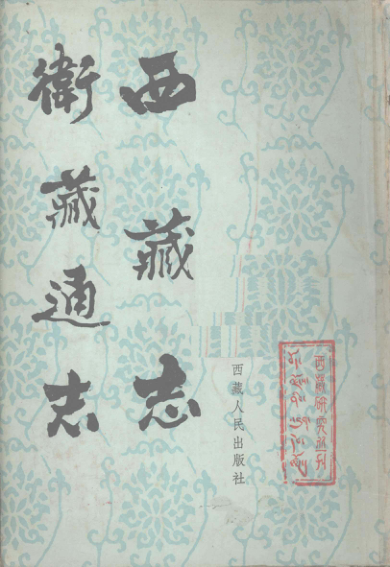 西藏志
衛藏通志
西藏人民出版社
西藏研究丛刊